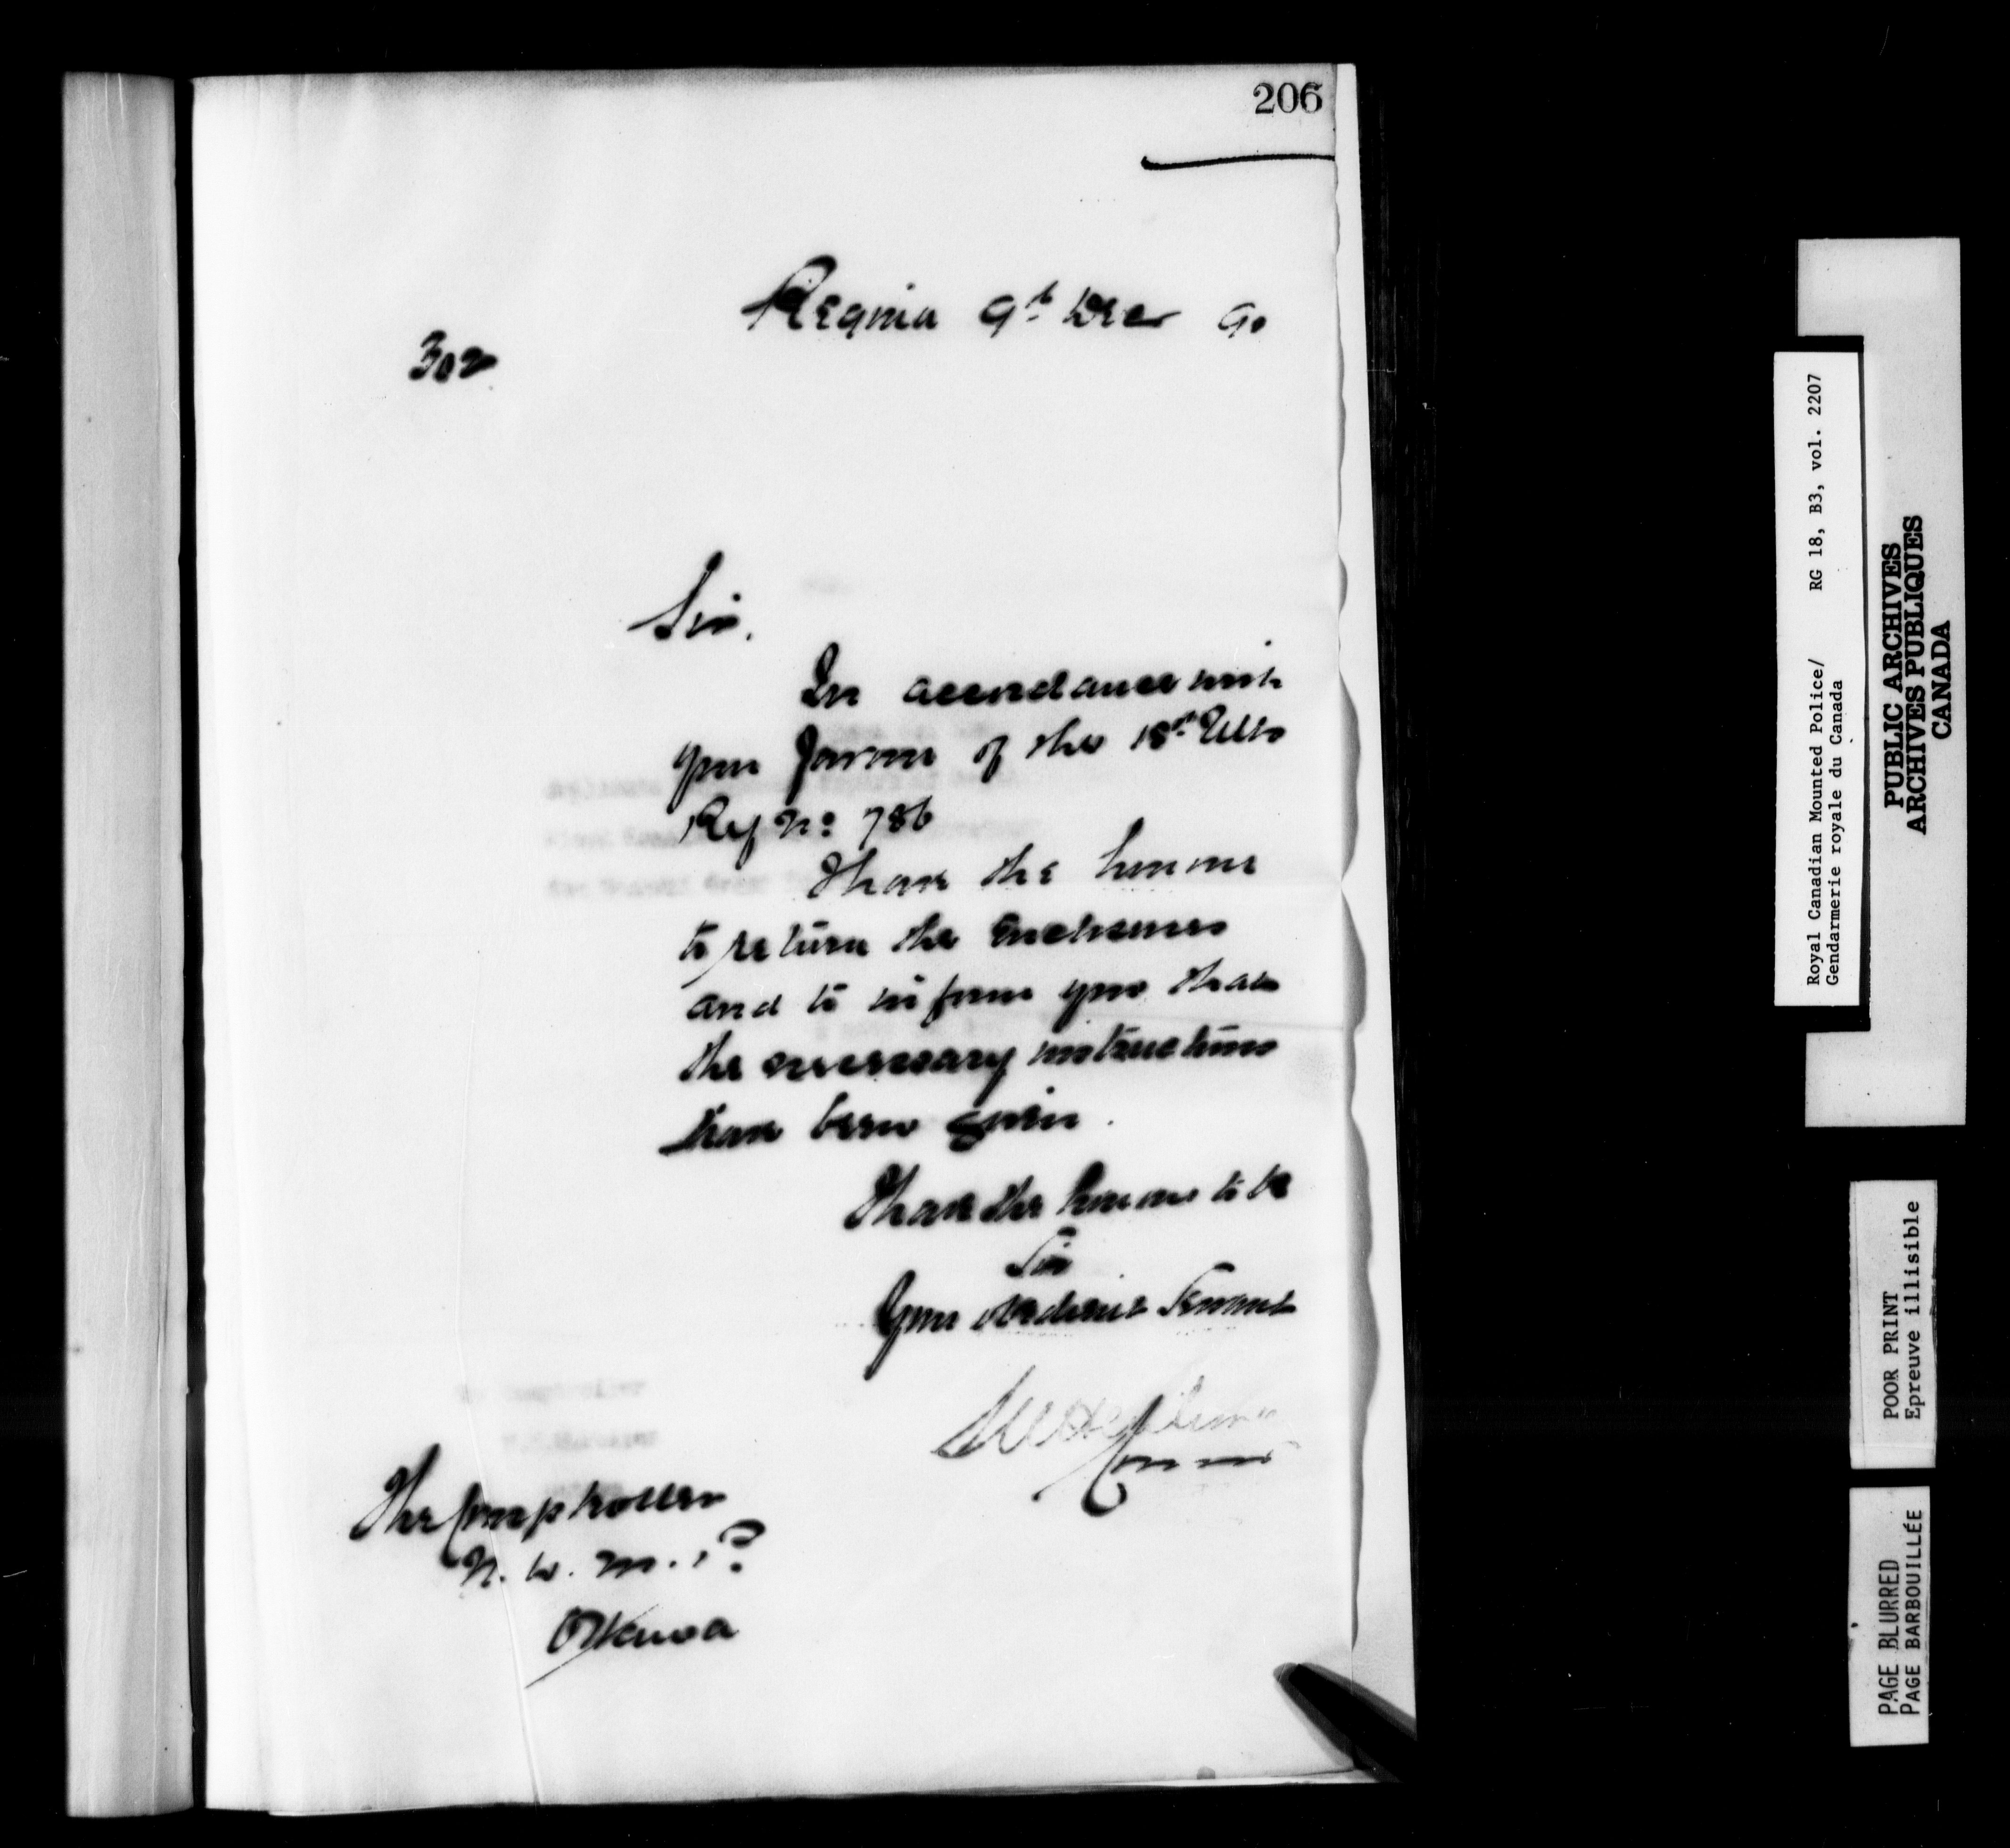 206
Regina 9th Decr 90
302
Sir,
In accordance with
your favour of the 18th Ulto
Ref No 786
I have the honour
to return the enclosures
and to inform you that
the necessary instructions
have been given.
I have the honour to be
Sir
Your obedient Servant
Commr
The Comptroller
N. W. M. P.
Ottawa
Royal Canadian Mounted Police/ RG 18, B3, vol. 2207
Gendarmerie royale du Canada
PUBLIC ARCHIVES
ARCHIVES PUBLIQUES
CANADA
POOR PRINT
Epreuve illisible
PAGE BLURRED
PAGE BARBOUILLÉE